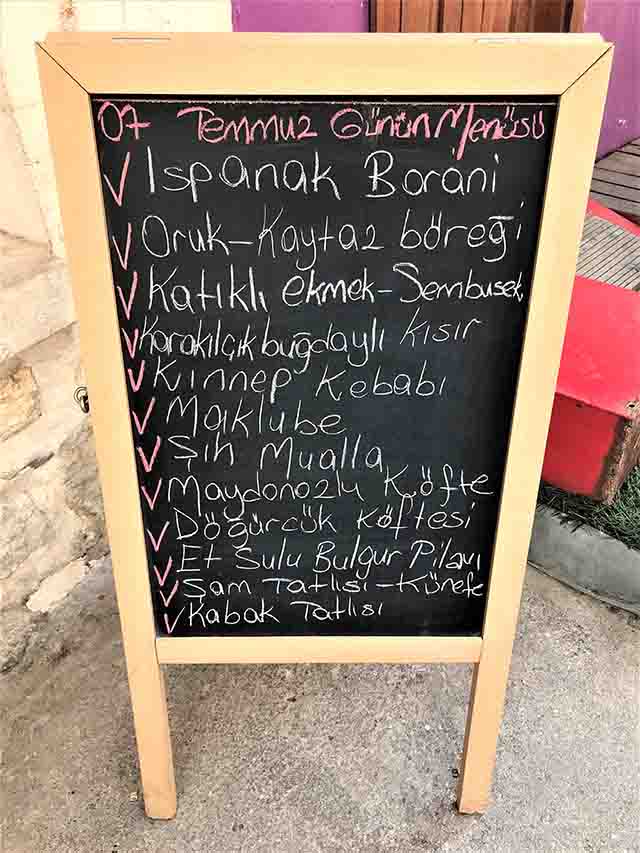 07 Temmuz Günün Menüsü
Ispanak Borani
Oruk-Kaytaz böreği
Katıklı ekmek-Sembusek
Karakılçık buğdaylı kısır
Kınnep Kebabı
Maklube
Şıh Mualla
Maydonozlu Köfte
Döğürcük Köftesi
Et Sulu Bulgur Pilavı
Şam Tatlısı-Künefe
Kabak Tatlısı